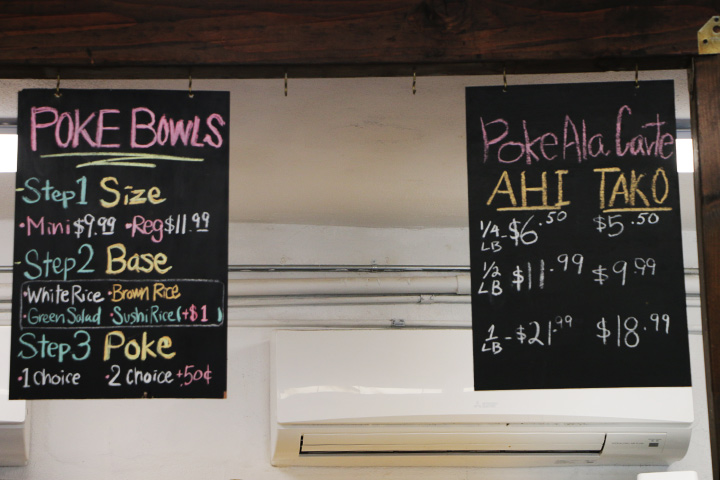 POKE BOWLS
Step1 Size
•Mini $9.99 •Reg $11.99
Step2 Base
•White Rice •Brown Rice
•Green Salad •Sushi Rice (+$1)
Step3 Poke
•1 choice •2 choice +50¢
Poke Ala Carte
AHI TAKO
1/4 LB - $6.50 $5.50
1/2 LB $11.99 $9.99
1 LB - $21.99 $18.99